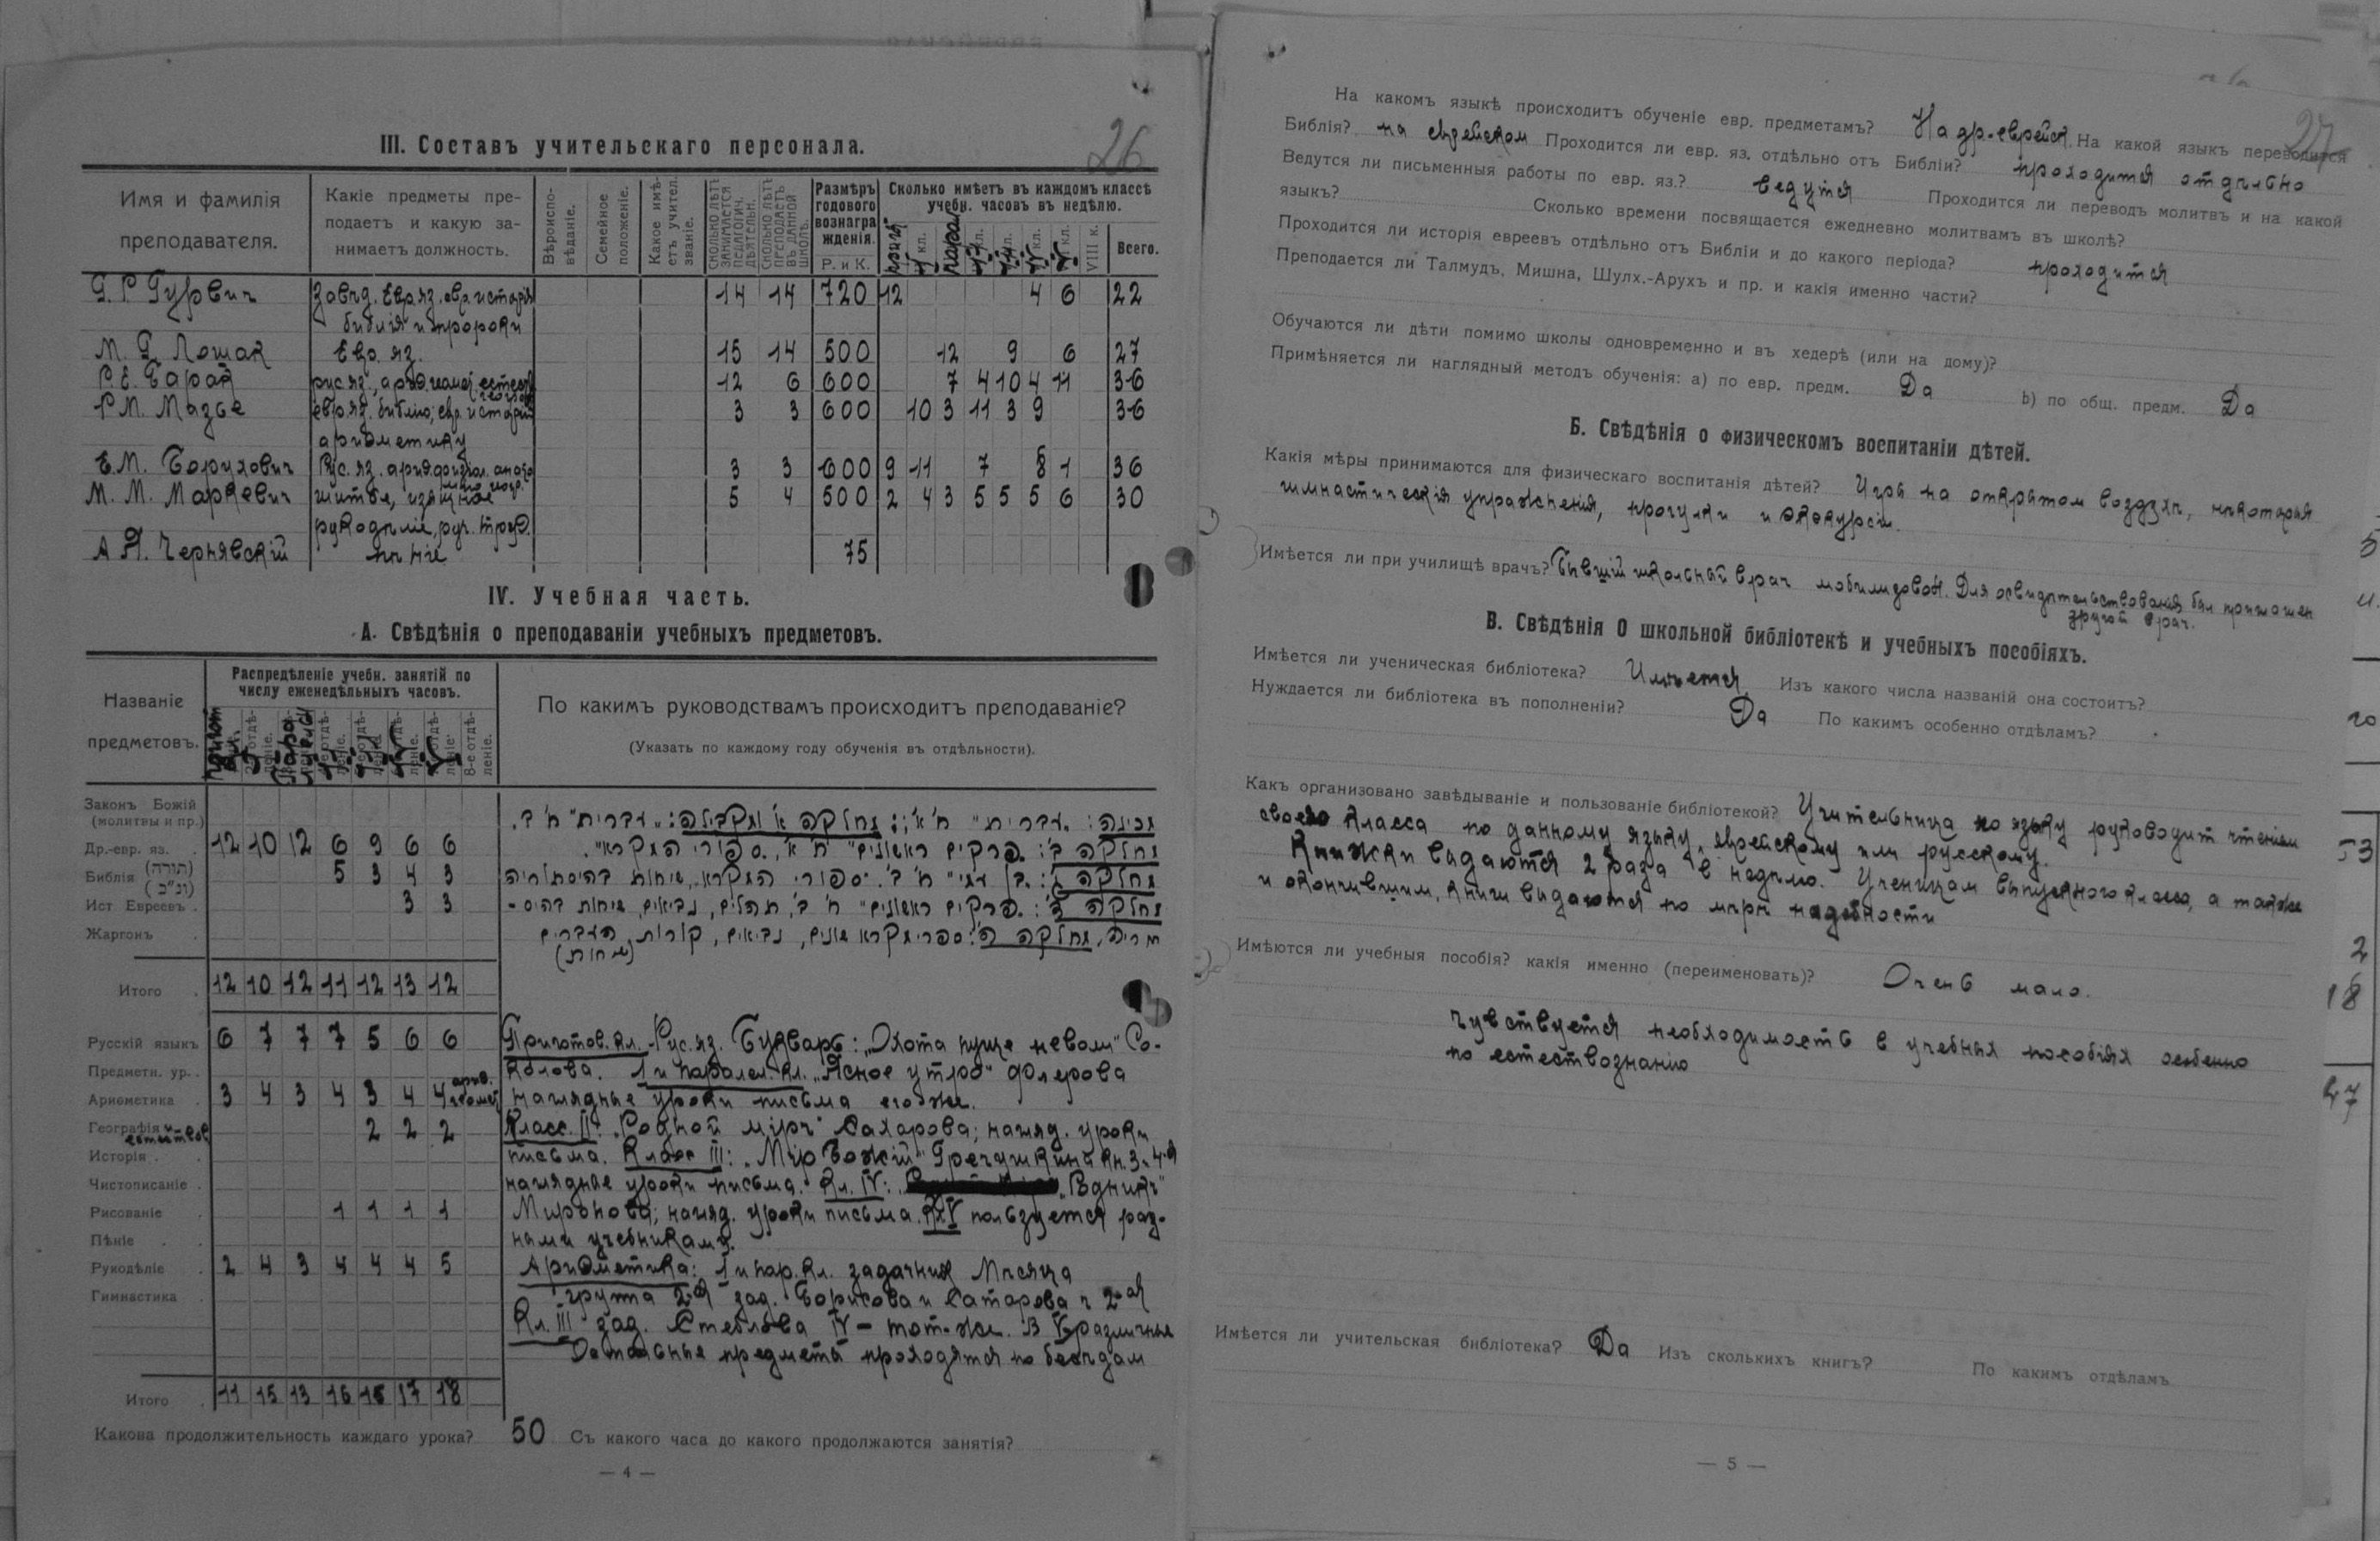 26
III. Составъ учительскаго персонала.
Имя и фамилія преподавателя.
Какіе предметы преподаетъ и какую занимаетъ должность.
Вѣроисповѣданіе.
Семейное положеніе.
Какое имѣетъ учител. званіе.
Сколько лѣтъ занимается педагогич. дѣятельн.
Сколько лѣтъ преподаетъ въ данной школѣ.
Размѣръ годового вознагражденія.
Р. и К.
Сколько имѣетъ въ каждомъ классѣ учебн. часовъ въ недѣлю.
VIII к.
Всего.
Гурвич Завѣд. Евр. яз. евр. исторія 14 14 720 12 4 6 22
библія и пророки
М. Г. Лошак Евр. яз. 15 14 500 12 9 6 27
12 6 600 7 4 10 4 11 36
Р М. Мазье евр. яз. библію, евр. исторію 3 3 600 10 3 11 3 9 36
арифметику
Е. М. Борухович Рус. яз. 3 3 600 9 11 7 8 1 36
М. М. Маркевич шитье, изящное 5 4 500 2 4 3 5 5 5 6 30
рукодѣліе, руч. труд.
А. Я. Чернявскій пѣніе 75
IV. Учебная часть.
А. Свѣдѣнія о преподаваніи учебныхъ предметовъ.
Названіе предметовъ.
Распредѣленіе учебн. занятій по числу еженедѣльныхъ часовъ.
8-е отдѣленіе.
По какимъ руководствамъ происходитъ преподаваніе?
(Указать по каждому году обученія въ отдѣльности).
Законъ Божій
(молитвы и пр.)
Др.-евр. яз. 12 10 12 6 9 6 6
Библія (תורה) (נ"כ) 5 3 4 3
Ист Евреевъ 3 3
Жаргонъ
מכינה: "עברית" ח' א'; מחלקה א' ומקבילה: "עברית" ח' ב'.
מחלקה ב': "פרקים ראשונים" ח' א', "ספורי המקרא".
מחלקה ג': "בן עמי" ח' ב'. "ספורי המקרא", שיחות בהיסתוריה
מחלקה ד': "פרקים ראשונים" ח' ב', תהלים, נביאים, שיחות בהיס-
תוריה. מחלקה ה': ספרי מקרא שונים, נביאים, קורות העברים
(שיחות)
Итого 12 10 12 11 12 13 12
Русскій языкъ 6 7 7 7 5 6 6
Предметн. ур.
Ариѳметика 3 4 3 4 3 4 4
Географія и естество 2 2 2
Исторія
Чистописаніе
Рисованіе 1 1 1 1
Пѣніе
Рукодѣліе 2 4 3 4 4 4 5
Гимнастика
Приготов. кл. Рус. яз. Букварь: „Охота пуще неволи" Со-
колова. 1 и паралел. кл. „Ясное утро" Флерова
наглядные уроки письма его же.
Класс II: „Родной міръ" Сахарова; нагляд. уроки
письма. Класс III: „Мір Божій" Гречушкина кн. 3 и 4-я
наглядные уроки письма. Кл. IV: „Родникъ"
Миронова; нагляд. уроки письма. Кл V пользуется раз-
ными учебниками.
Арифметика: 1 и пар. кл. задачник Мѣсяца
группа 2-я зад. Борисова и Сатарова ч 2-ая
Кл. III зад. Стеблова IV – тот-же. В V различные
Остальные предметы проходятся по бесѣдам
Итого 11 15 13 16 15 17 18
Какова продолжительность каждаго урока? 50 Съ какого часа до какого продолжаются занятія?
— 4 —
27
На какомъ языкѣ происходитъ обученіе евр. предметамъ? На др.-еврейск. На какой языкъ переводится
Библія? на еврейском Проходится ли евр. яз. отдѣльно отъ Библіи? проходится отдѣльно
Ведутся ли письменныя работы по евр. яз.? ведутся Проходится ли переводъ молитвъ и на какой
языкъ? Сколько времени посвящается ежедневно молитвамъ въ школѣ?
Проходится ли исторія евреевъ отдѣльно отъ Библіи и до какого періода? проходится
Преподается ли Талмудъ, Мишна, Шулх.-Арухъ и пр. и какія именно части?
Обучаются ли дѣти помимо школы одновременно и въ хедерѣ (или на дому)?
Примѣняется ли наглядный методъ обученія: а) по евр. предм. Да b) по общ. предм. Да
Б. Свѣдѣнія о физическомъ воспитаніи дѣтей.
Какія мѣры принимаются для физическаго воспитанія дѣтей? Игры на открытом воздухѣ, нѣкоторыя
гимнастическія упражненія, прогулки и экскурсіи.
Имѣется ли при училищѣ врачъ? Бывшій школьный врач мобилизован. Для освидѣтельствованія был приглашен
другой врач.
В. Свѣдѣнія О школьной библіотекѣ и учебныхъ пособіяхъ.
Имѣется ли ученическая библіотека? Имѣется Изъ какого числа названій она состоитъ?
Нуждается ли библіотека въ пополненіи? Да По какимъ особенно отдѣламъ?
Какъ организовано завѣдываніе и пользованіе библіотекой? Учительница по языку руководит чтеніем
своего класса по данному языку, еврейскому или русскому.
Книжки выдаются 2 раза в недѣлю. Ученицам выпускного класса, а также
и окончившим, книги выдаются по мѣрѣ надобности
Имѣются ли учебныя пособія? какія именно (переименовать)? Очень мало.
Чувствуется необходимость в учебных пособіях особенно
по естествознанію
Имѣется ли учительская библіотека? Да Изъ сколькихъ книгъ? По какимъ отдѣламъ
— 5 —
53
2
18
47